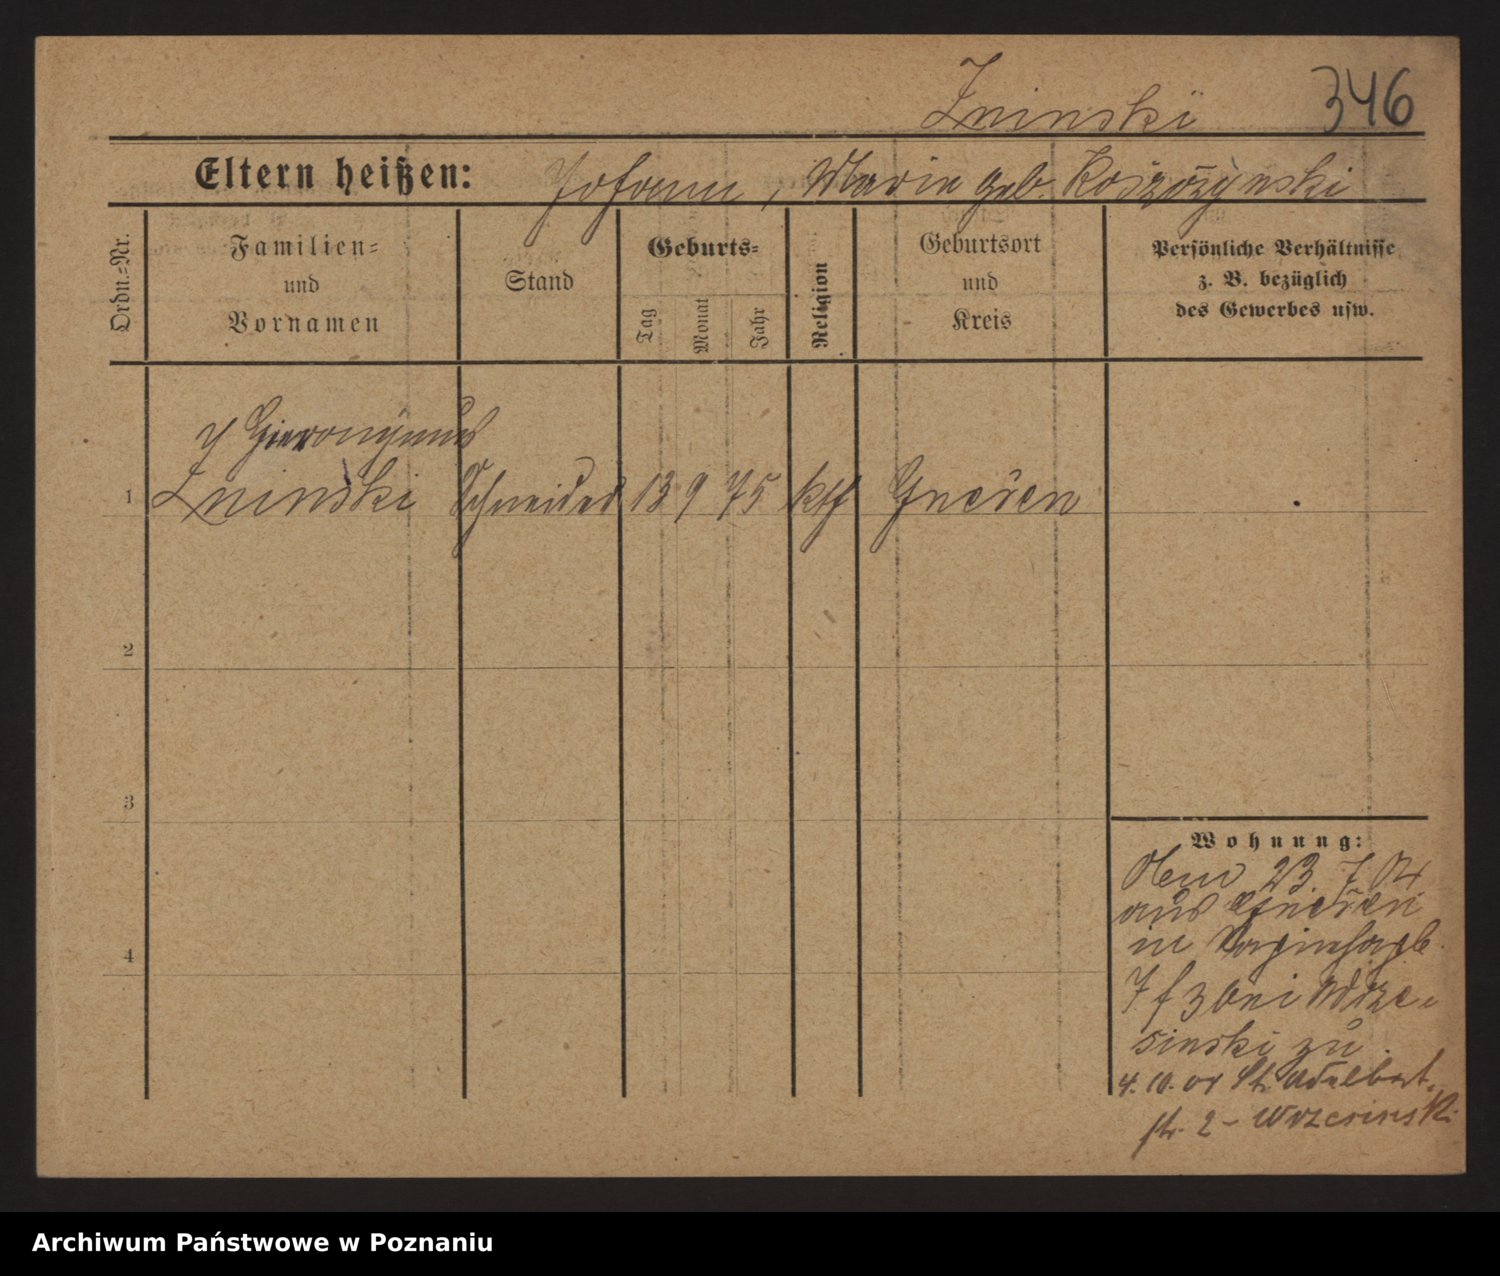 Zninski 346
Eltern heißen: Johann, Marie geb. Koszczynski
Ordn.=Nr.
Familien=
und
Vornamen
Stand
Geburts=
Tag
Monat
Jahr
Religion
Geburtsort
und
Kreis
Persönliche Verhältnisse
z. B. bezüglich
des Gewerbes usw.
Hieronymus
1 Zninski Schneider 13 9 75 kth Gnesen
2
3
4
Wohnung:
23. 7 04
aus Gnesen
in
7 f 3 bei Wrze-
sinski zu.
4. 10. 04 St. Adalbert-
str. 2 - Wrzesinski